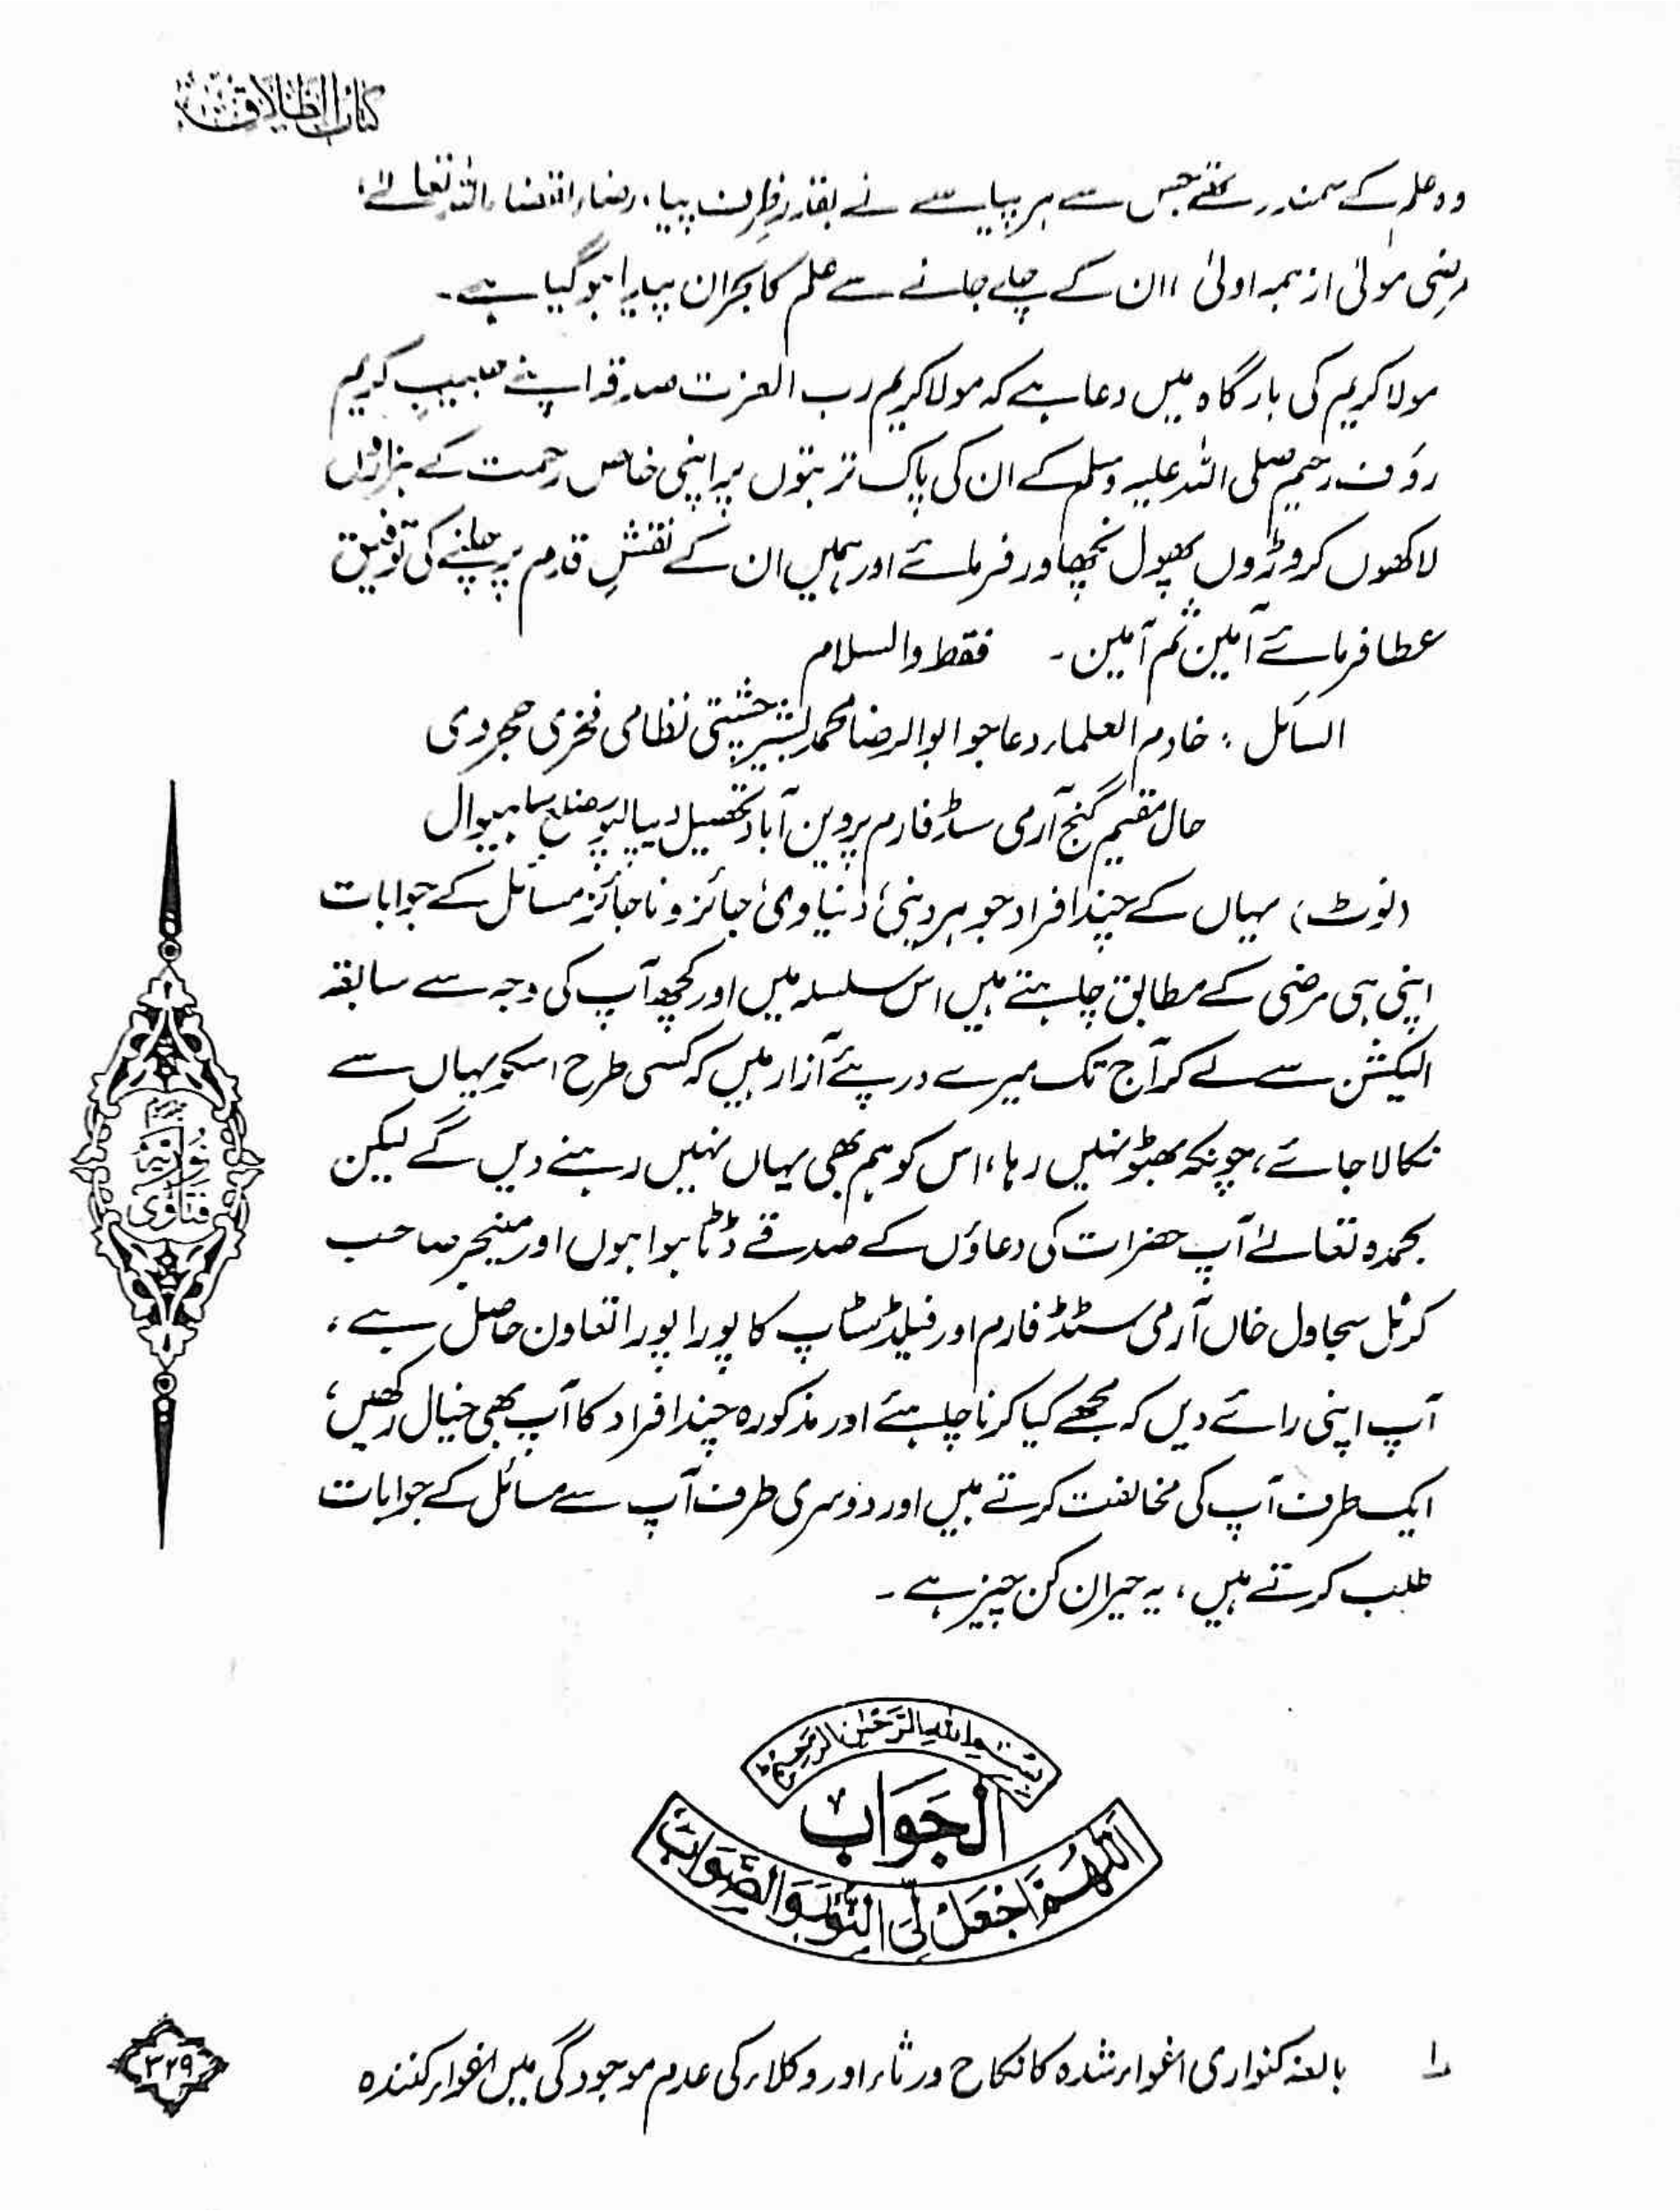 کتاب الطلاق
وہ علم کے سمندر تھے جس سے ہر پیاسے نے بقدر ظرف پیا، رضاء اقتضاء اللہ تعالےٰ،
مرضی مولیٰ از ہمہ اولیٰ ان کے چلے جانے سے علم کا بحران پیدا ہو گیا ہے۔
مولا کریم کی بارگاہ میں دعا ہے کہ مولا کریم رب العزت صدقہ اپنے حبیب کریم
رؤف رحیم صلی اللہ علیہ وسلم کے ان کی پاک تربتوں پر اپنی خاص رحمت کے ہزاروں
لاکھوں کروڑوں پھول نچھاور فرمائے اور ہمیں ان کے نقشِ قدم پر چلنے کی توفیق
عطا فرمائے آمین ثم آمین۔ فقط والسلام
السائل : خادم العلماء دعا جو ابوالرضا محمد بشیر چشتی نظامی فخری
حال مقیم گنج آرمی سٹڈ فارم پروین آباد تحصیل دیپالپور ضلع ساہیوال
(نوٹ) یہاں کے چند افراد جو ہر دینی دنیاوی جائز و ناجائز مسائل کے جوابات
اپنی ہی مرضی کے مطابق چاہتے ہیں اس سلسلہ میں اور کچھ آپ کی وجہ سے سابقہ
الیکشن سے لے کر آج تک میرے درپئے آزار ہیں کہ کسی طرح اسکو یہاں سے
نکالا جائے، چونکہ بھٹو نہیں رہا، اس کو ہم بھی یہاں نہیں رہنے دیں گے لیکن
بحمدہ تعالےٰ آپ حضرات کی دعاؤں کے صدقے ڈٹا ہوا ہوں اور مینیجر صاحب
کرنل سجاول خاں آرمی سٹڈ فارم اور فیلڈ سٹاپ کا پورا پورا تعاون حاصل ہے،
آپ اپنی رائے دیں کہ مجھے کیا کرنا چاہئے اور مذکورہ چند افراد کا آپ بھی خیال رکھیں،
ایک طرف آپ کی مخالفت کرتے ہیں اور دوسری طرف آپ سے مسائل کے جوابات
طلب کرتے ہیں، یہ حیران کن چیز ہے۔
فتاوی نوریہ
بسم الله الرحمن الرحيم
الجَوَاب
اَللّٰهُمَّ اجْعَلْ لِيَ النُّوْرَ وَالصَّوَابَ
۱ بالغہ کنواری اغواء شدہ کا نکاح ورثاء اور وکلاء کی عدم موجودگی میں اغواء کنندہ
۳۲۹